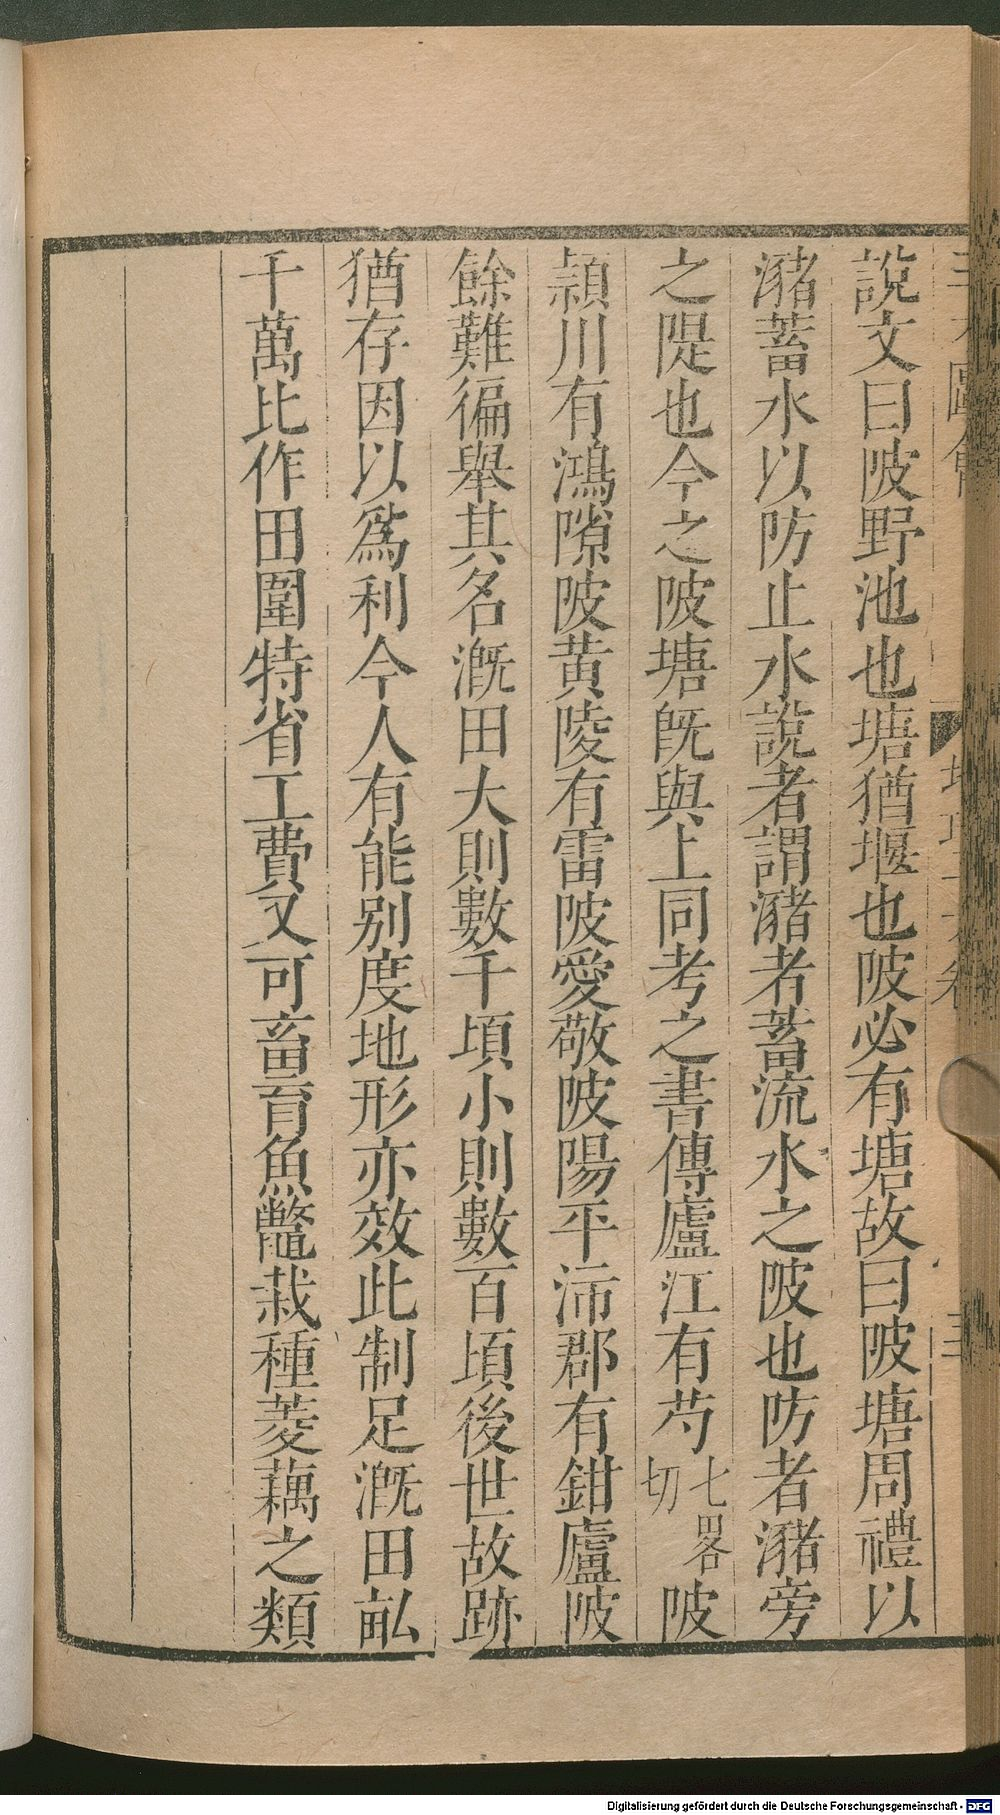 說文曰陂野池也塘猶堰也陂必有塘故曰陂塘周禮以
瀦蓄水以防止水說者謂瀦者蓄流水之陂也防者瀦旁
之隄也今之陂塘旣與上同考之書傳廬江有芍七畧切陂
潁川有鴻隙陂黃陵有雷陂愛敬陂陽平沛郡有鉗廬陂
餘難徧舉其名溉田大則數千頃小則數百頃後世故跡
猶存因以爲利今人有能别度地形亦效此制足溉田畝
千萬比作田圍特省工費又可畜育魚鼈栽種菱藕之類
Digitalisierung gefördert durch die Deutsche Forschungsgemeinschaft - DFG